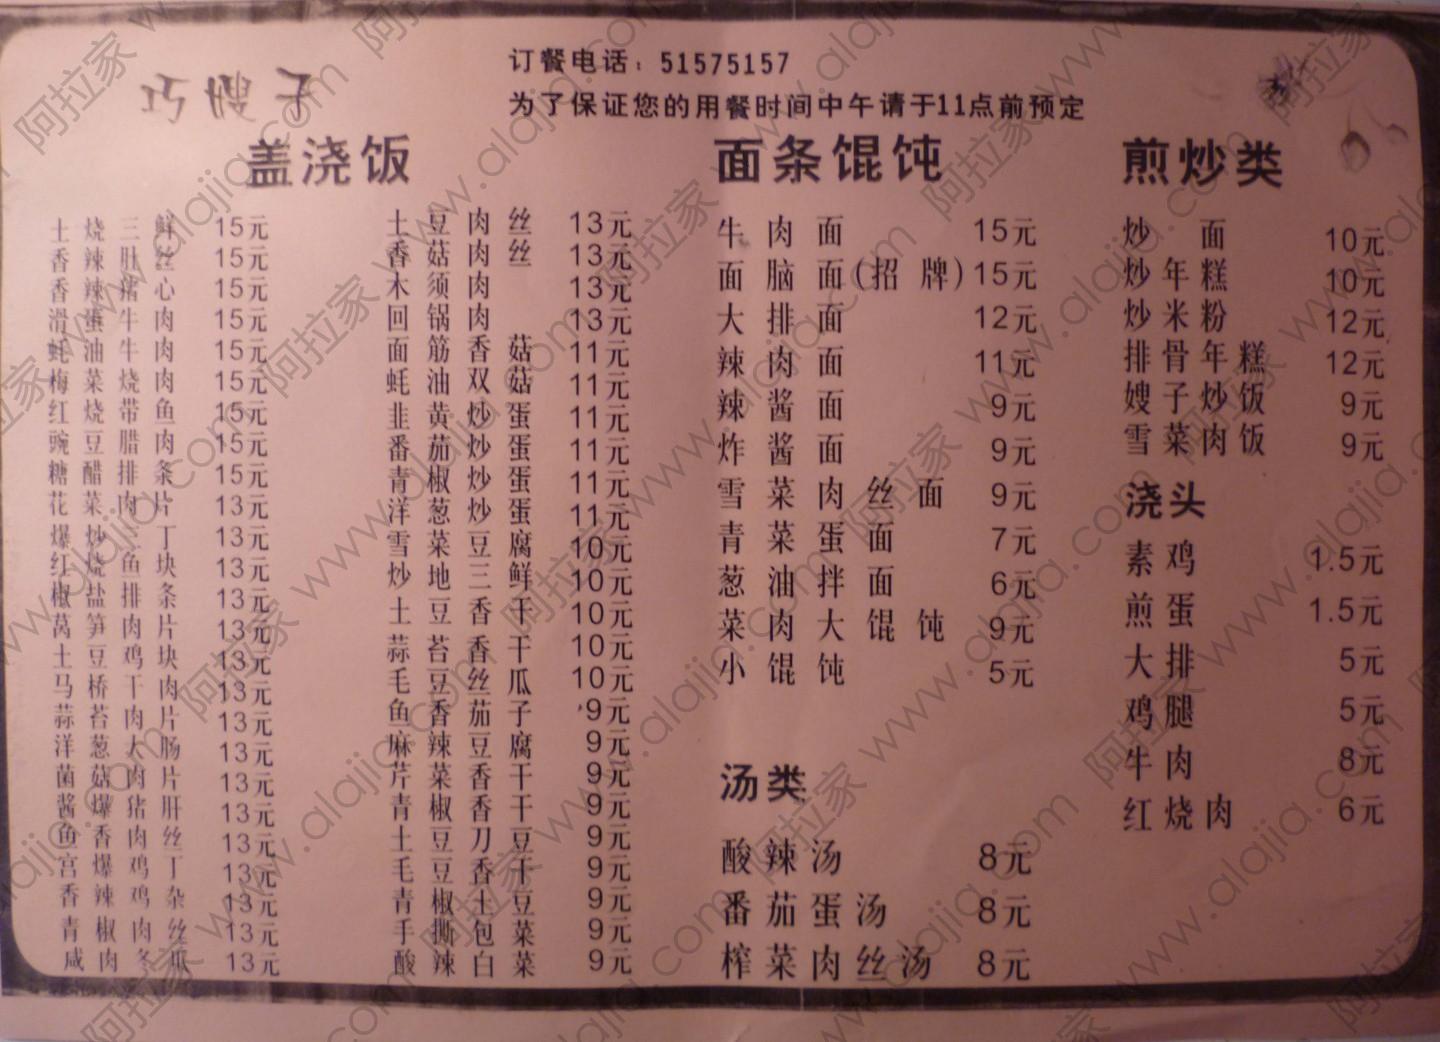 巧嫂子
订餐电话：51575157
为了保证您的用餐时间中午请于11点前预定
盖浇饭
土烧三鲜 15元
香辣肚丝 15元
香辣猪心 15元
滑蛋牛肉 15元
蚝油牛肉 15元
梅菜烧肉 15元
红烧带鱼 15元
豌豆腊肉 15元
糖醋排条 15元
花菜肉片 13元
爆炒 丁 13元
红烧鱼块 13元
椒盐排条 13元
莴笋肉片 13元
土豆鸡块 13元
马桥干肉 13元
蒜苔肉片 13元
洋葱大肠 13元
菌菇肉片 13元
酱爆猪肝 13元
鱼香肉丝 13元
宫爆鸡丁 13元
香辣鸡杂 13元
青椒肉丝 13元
咸肉冬瓜 13元
土豆肉丝 13元
香菇肉丝 13元
木须肉 13元
回锅肉 13元
面筋香菇 11元
蚝油双菇 11元
韭黄炒蛋 11元
番茄炒蛋 11元
青椒炒蛋 11元
洋葱炒蛋 11元
雪菜豆腐 10元
炒地三鲜 10元
土豆香干 10元
蒜苔香干 10元
毛豆丝瓜 10元
鱼香茄子 9元
麻辣豆腐 9元
芹菜香干 9元
青椒香干 9元
土豆刀豆 9元
毛豆香干 9元
青椒土豆 9元
手撕包菜 9元
酸辣白菜 9元
面条馄饨
牛肉面 15元
面脑面(招牌) 15元
大排面 12元
辣肉面 11元
辣酱面 9元
炸酱面 9元
雪菜肉丝面 9元
青菜蛋面 7元
葱油拌面 6元
菜肉大馄饨 9元
小馄饨 5元
汤类
酸辣汤 8元
番茄蛋汤 8元
榨菜肉丝汤 8元
煎炒类
炒面 10元
炒年糕 10元
炒米粉 12元
排骨年糕 12元
嫂子炒饭 9元
雪菜肉饭 9元
浇头
素鸡 1.5元
煎蛋 1.5元
大排 5元
鸡腿 5元
牛肉 8元
红烧肉 6元
阿拉家 www.alajia.com